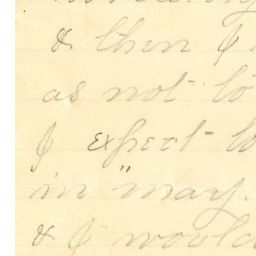 & then I
as not to
I expect to
in "may.
& I would